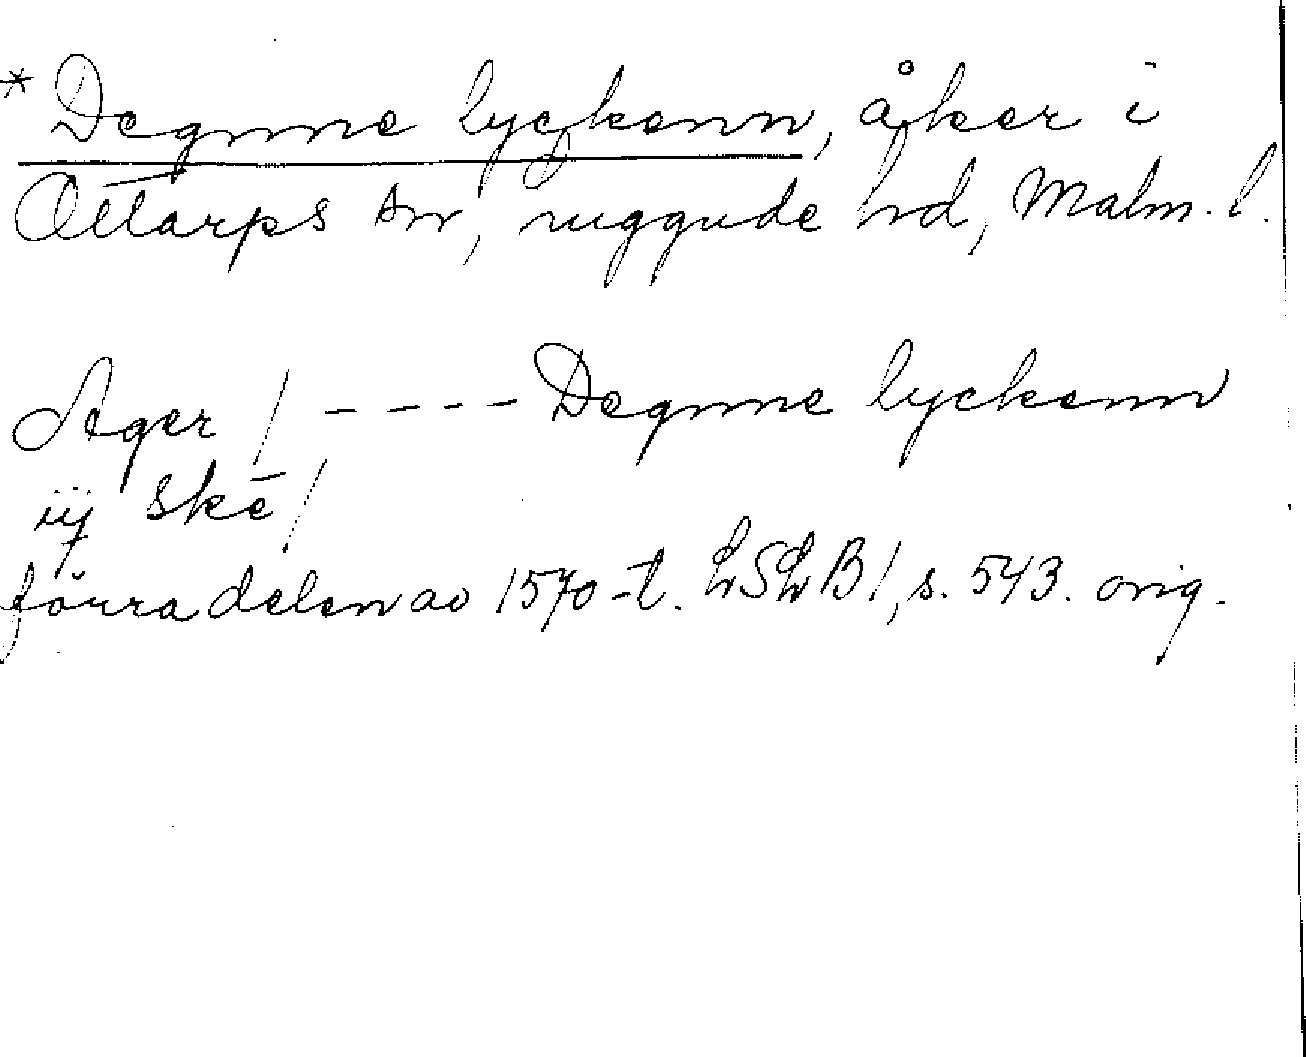 * Degnne lyckenn, åker i
Ottarps sn, ruggude hd, Malm. l.
Ager / ---- Degnne lyckenn
iij skē /
förra delen av 1570-t. LSLB 1, s. 543. orig.